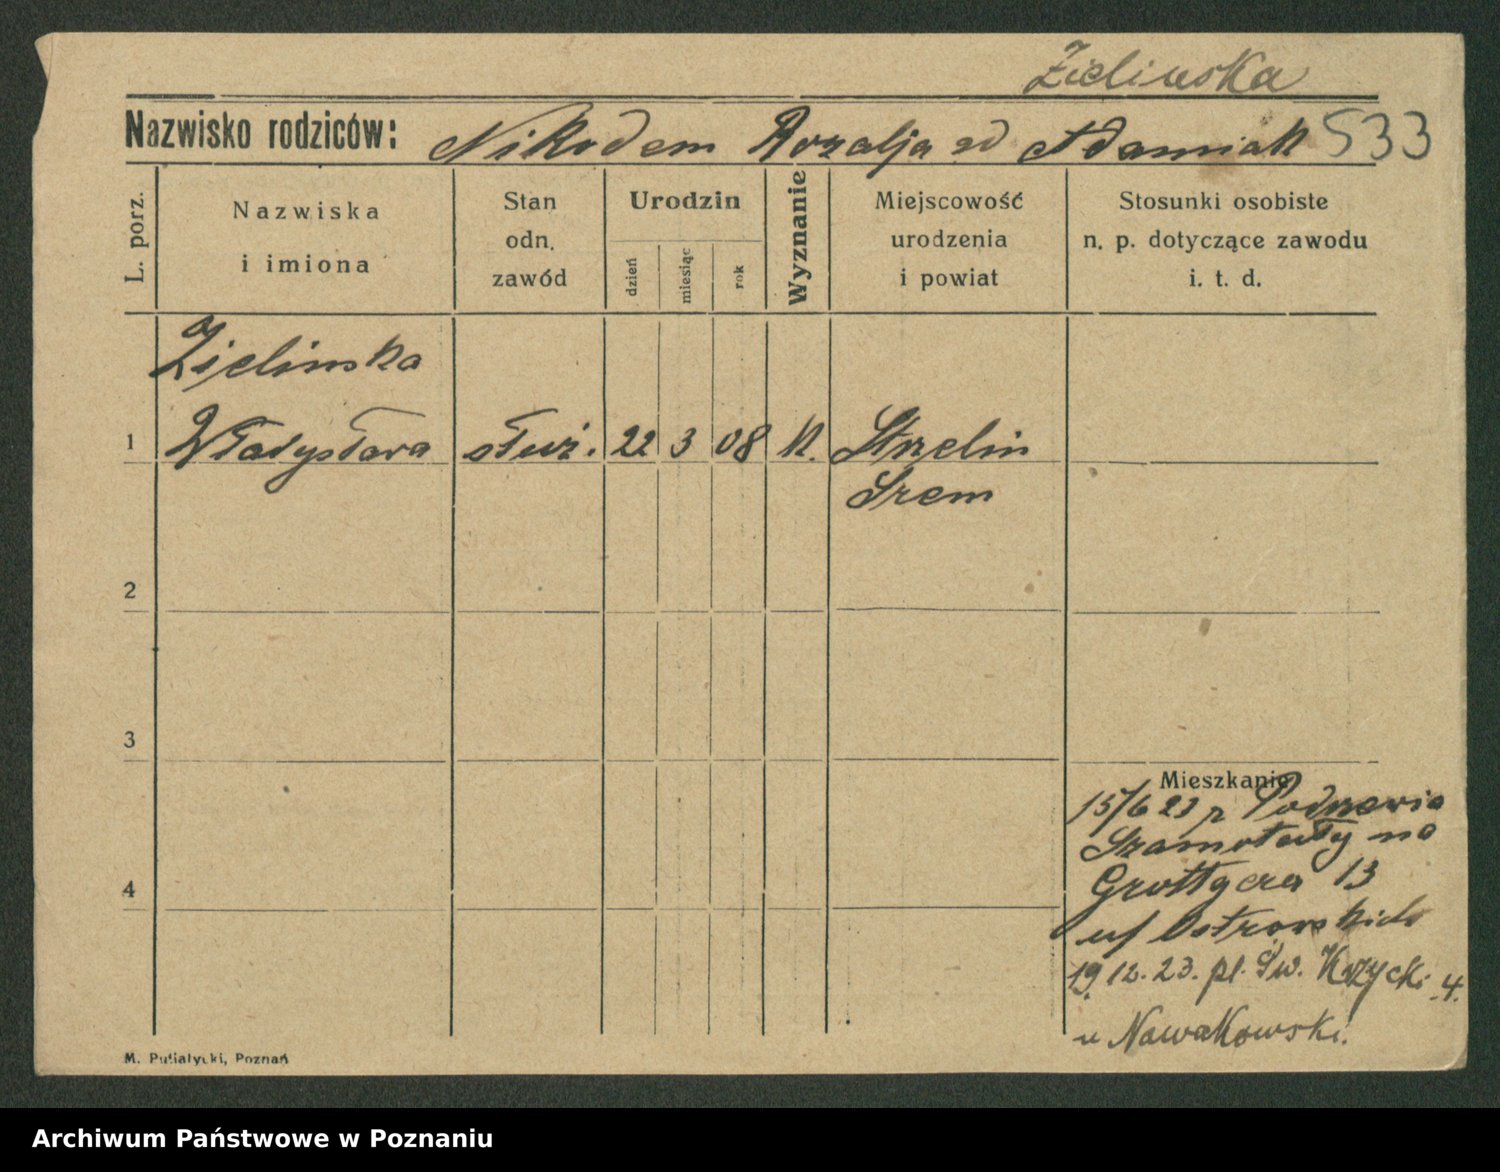 Zielinska
Nazwisko rodziców: Nikodem Rozalja zd Adamiak 533
L. porz.
Nazwiska
i imiona
Stan
odn.
zawód
Urodzin
dzień
miesiąc
rok
Wyznanie
Miejscowość
urodzenia
i powiat
Stosunki osobiste
n. p. dotyczące zawodu
i. t. d.
Zielinska
1 Władysława służ. 22 3 08 K. Strzelin
Srem
2
3
Mieszkanie
15/6 23 z
Szamotuły na
4 Grottgera 13
Ostrowskich
19.12.23. pl. Św. Krzycki 4.
u Nowakowski.
M. Putiatycki, Poznań
Archiwum Państwowe w Poznaniu